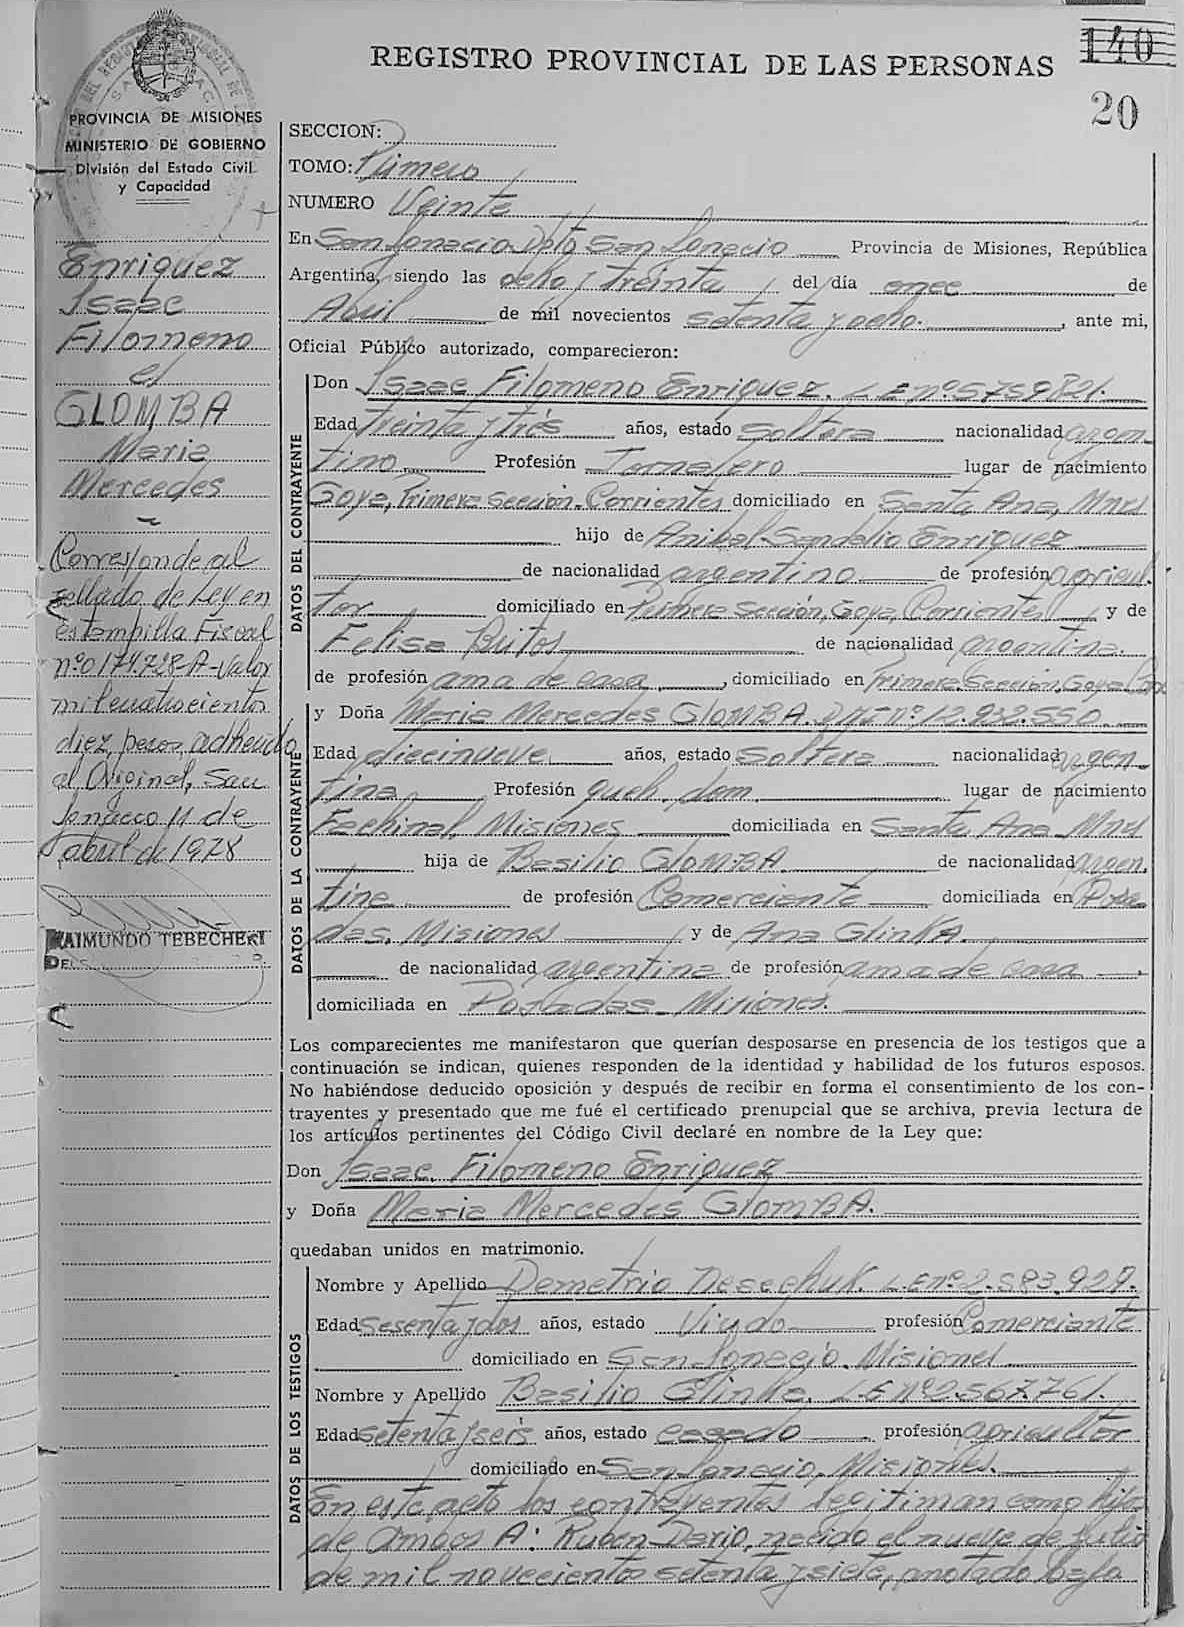 140
REGISTRO PROVINCIAL DE LAS PERSONAS
20
PROVINCIA DE MISIONES
MINISTERIO DE GOBIERNO
División del Estado Civil
y Capacidad
Enriquez
Isaac
Filomeno
c/
GLOMBA
Maria
Mercedes
Corresponde al
sellado de Ley en
estampilla Fiscal
nº0174.728-A-valor
mil cuatrocientos
diez pesos, adherido
al Original, San
Ignacio 11 de
abril de 1978
RAIMUNDO TEBECHERI
SECCION:
TOMO: Primero
NUMERO Veinte
En San Ignacio Dpto San Ignacio Provincia de Misiones, República
Argentina, siendo las ocho y treinta del día once de
Abril de mil novecientos setenta y ocho. , ante mi,
Oficial Público autorizado, comparecieron:
DATOS DEL CONTRAYENTE
Don Isaac Filomeno Enriquez. L.E nº.5759821.
Edad treinta y trés años, estado soltero nacionalidad argen-
tino Profesión Jornalero lugar de nacimiento
Goya, Primera Sección-Corrientes domiciliado en Santa Ana, Mnes
hijo de Anibal Sandalio Enriquez
de nacionalidad argentino de profesión agricul-
tor domiciliado en Primera Sección, Goya, Corrientes y de
Felisa de nacionalidad argentina.
de profesión ama de casa , domiciliado en Primera Sección, Goya
DATOS DE LA CONTRAYENTE
y Doña Maria Mercedes GLOMBA. D.N.I nº.12.932.550
Edad diecinueve años, estado soltera nacionalidad argen-
tina Profesión queh. dom. lugar de nacimiento
Fachinal, Misiones domiciliada en Santa Ana Mnes
hija de Basilio GLOMBA. de nacionalidad argen.
tina de profesión Comerciante domiciliada en Posa
das, Misiones y de Ana GlinKA.
de nacionalidad argentina de profesión ama de casa ,
domiciliada en Posadas-Misiones.
Los comparecientes me manifestaron que querían desposarse en presencia de los testigos que a
continuación se indican, quienes responden de la identidad y habilidad de los futuros esposos.
No habiéndose deducido oposición y después de recibir en forma el consentimiento de los con-
trayentes y presentado que me fué el certificado prenupcial que se archiva, previa lectura de
los artículos pertinentes del Código Civil declaré en nombre de la Ley que:
Don Isaac Filomeno Enriquez
y Doña Maria Mercedes GlomBA.
quedaban unidos en matrimonio.
DATOS DE LOS TESTIGOS
Nombre y Apellido Demetrio Desechuk. L.E nº.2.583.929.
Edad sesenta y dos años, estado Viudo profesión Comerciante
domiciliado en San Ignacio. Misiones
Nombre y Apellido Basilio Glinka. L.E nº2567.761.
Edad setenta y seis años, estado casado profesión agricultor
domiciliado en San Ignacio, Misiones.
En este acto los contrayentes legitiman como hijo
de ambos A: Ruben Dario, nacido el nueve de Julio
de mil novecientos setenta y siete, anotado bajo